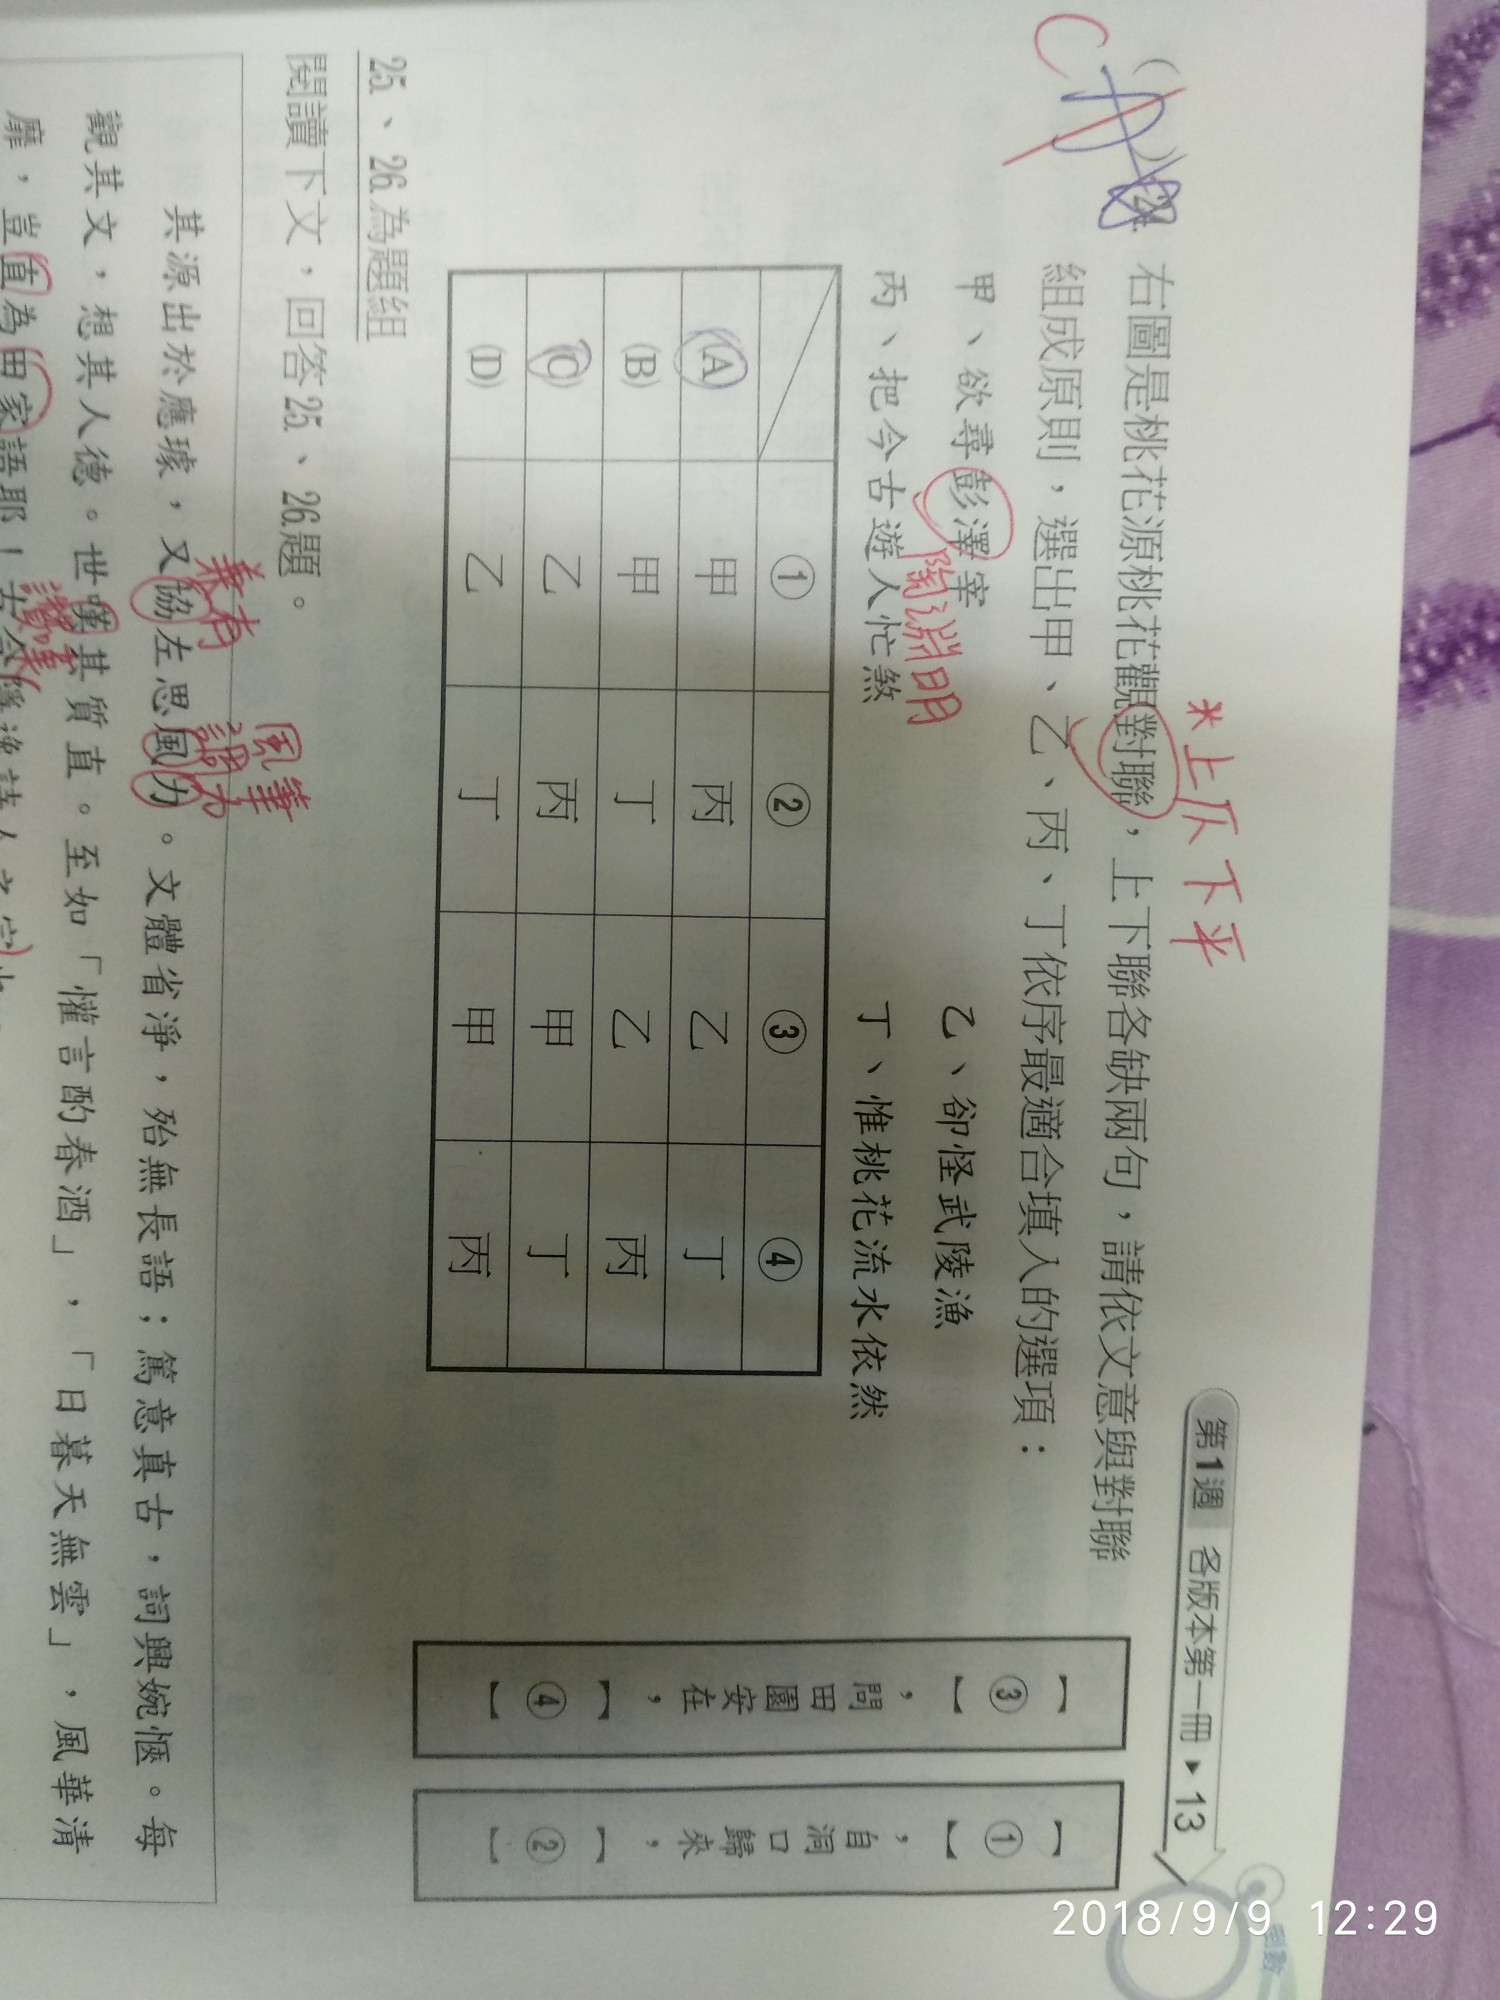 第1週 各版本第一冊 ▸ 13
*上仄下平
C
24. 右圖是桃花源桃花觀對聯，上下聯各缺兩句，請依文意與對聯
組成原則，選出甲、乙、丙、丁依序最適合填入的選項：
甲、欲尋彭澤宰 乙、卻怪武陵漁
陶淵明
丙、把今古遊人忙煞 丁、惟桃花流水依然
① ② ③ ④
(A) 甲 丙 乙 丁
(B) 甲 丁 乙 丙
(C) 乙 丙 甲 丁
(D) 乙 丁 甲 丙
【①】，自洞口歸來，【②】
【③】，問田園安在，【④】
25、26.為題組
閱讀下文，回答25、26.題。
兼有
風
筆力
其源出於應璩，又協左思風力。文體省淨，殆無長語；篤意真古，詞興婉愜。每
觀其文，想其人德。世嘆其質直。至如「懽言酌春酒」，「日暮天無雲」，風華清
讚嘆
靡，豈直為田家語耶！古今隱逸詩人之宗也
2018/9/9 12:29